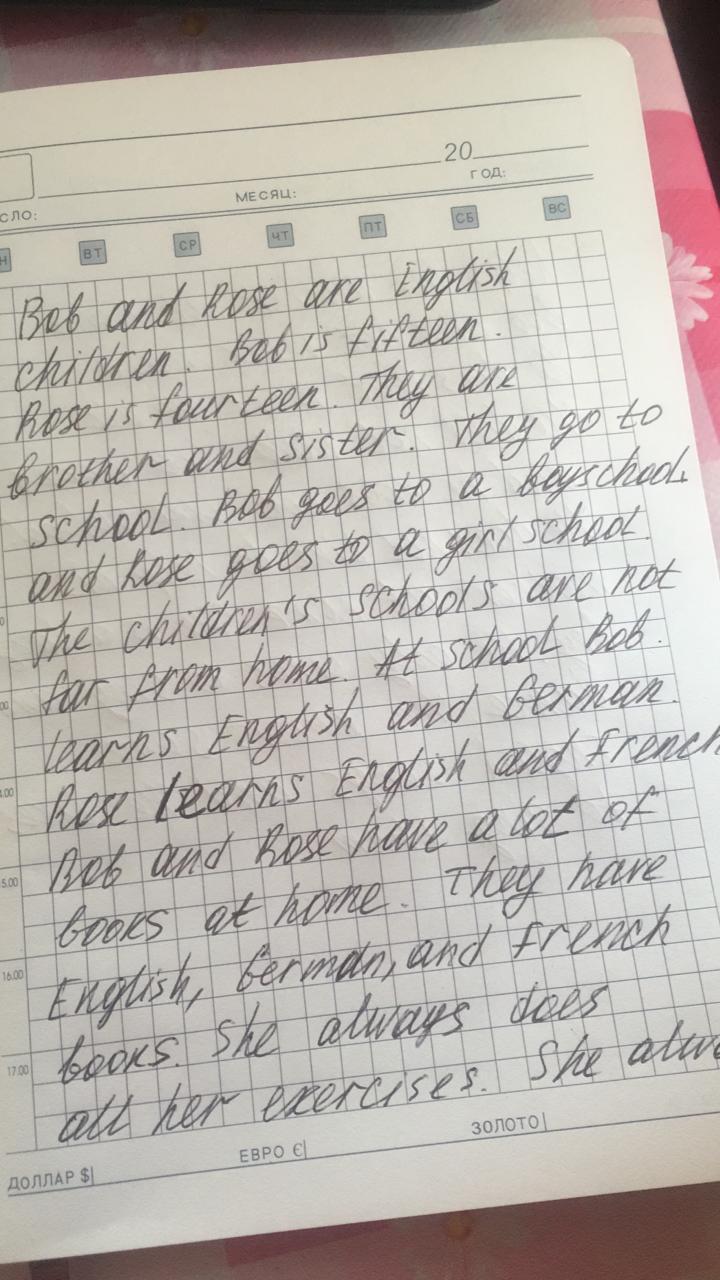 20
СЛО: МЕСЯЦ: ГОД:
Н ВТ СР ЧТ ПТ СБ ВС
Bob and Rose are English
children. Bob is fifteen.
Rose is fourteen. They are
brother and sister. They go to
school. Bob goes to a boyschool.
and Rose goes to a girl school.
The children's schools are not
far from home. At school Bob.
learns English and German.
Rose learns English and French
Bob and Rose have a lot of
books at home. They have
English, German, and French
books. She always does
all her exercises. She alwa
15.00
16.00
17.00
ДОЛЛАР $ ЕВРО € ЗОЛОТО